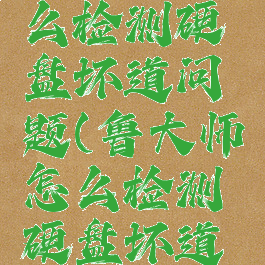 么检测硬
盘坏道问
题(鲁大师
怎么检测
硬盘坏道